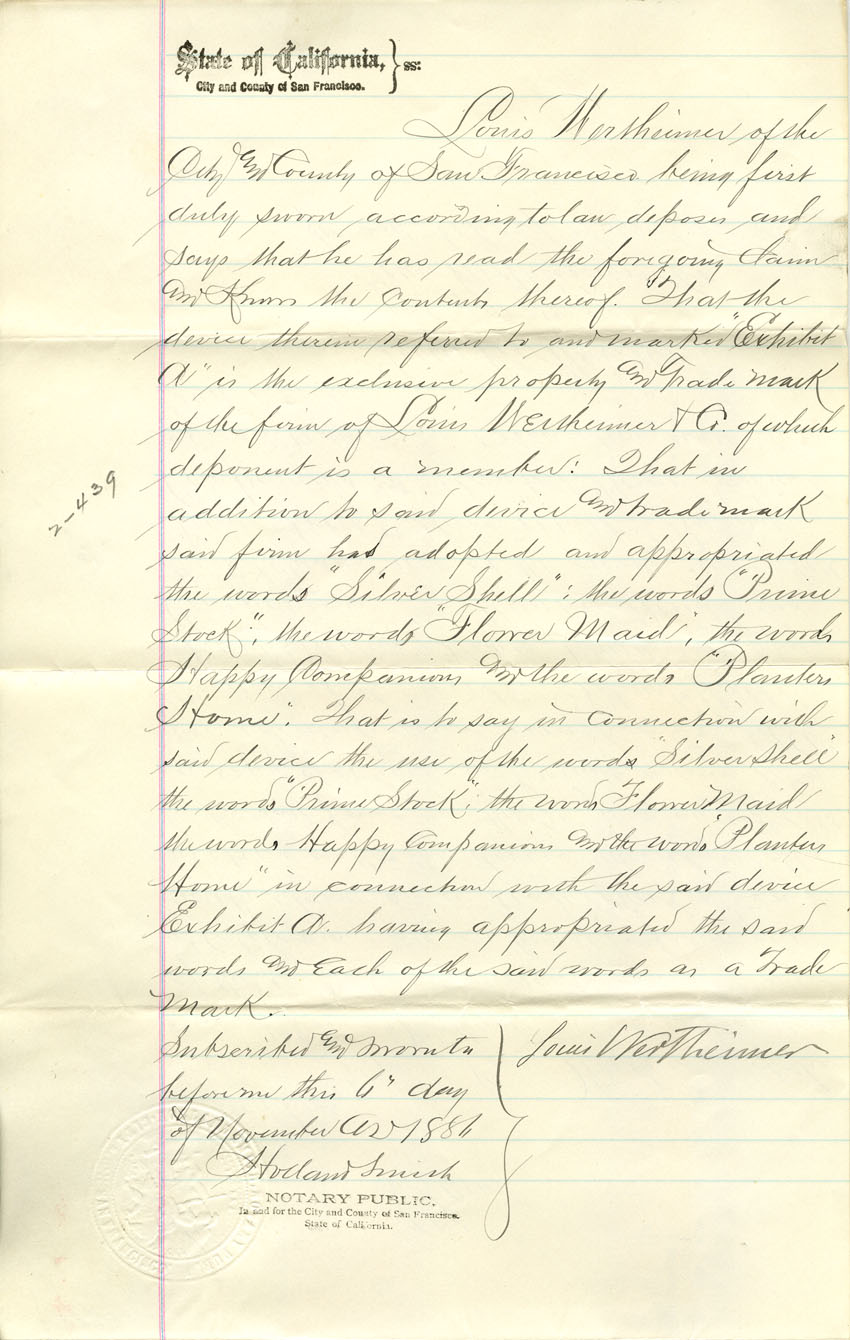 State of California, } ss:
City and County of San Francisco.
Louis Wertheimer of the
City and County of San Francisco being first
duly sworn according to law deposes and
says that he has read the foregoing claim
and knows the contents thereof. "That the
device therein referred to and marked "Exhibit
A" is the exclusive property and Trade Mark
of the firm of Louis Wertheimer & Co. of which
deponent is a member: That in
addition to said device and trade mark
said firm had adopted and appropriated
the words "Silver Shell"; the words "Prime
Stock"; the words "Flower Maid", the words
Happy Companions and the words "Planters
Home". That is to say in connection with
said device the use of the words "Silver Shell"
the words "Prime Stock"; the words Flower Maid
the words Happy Companions and the words "Planters
Home" in connection with the said device
Exhibit A. having appropriated the said
words and Each of the said words as a Trade
Mark.
2-439
Subscribed and sworn to
before me this 6" day
of November AD 1886
Holland Smith
Louis Wertheimer
NOTARY PUBLIC,
In and for the City and County of San Francisco.
State of California.